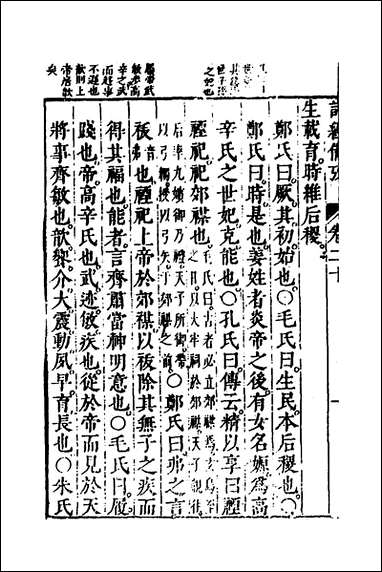 詩經備攷 卷二十
生載育時維后稷
鄭氏曰厥其初始也○毛氏曰生民本后稷也○
鄭氏曰時是也姜姓者炎帝之後有女名嫄爲高
辛氏之世妃克能也○孔氏曰傳云精以享曰禋
禋祀祀郊禖也毛氏曰古者必立郊禖焉玄鳥至之日以大牢祠於郊禖天子親往
后率九嬪御乃禮天子所御帶以弓韣授以弓矢于郊禖之前○鄭氏曰弗之言
祓音也禋祀上帝於郊禖以祓除其無子之疾而
得其福也能者言齊肅當神明意也○毛氏曰履
踐也帝高辛氏也武迹敏疾也從於帝而見於天
將事齊敏也歆饗介大震動夙早育長也○朱氏
之妃也
履帝武
敏歆高
辛之武
而趍事
不遲也
歆則上
帝居歆
矣